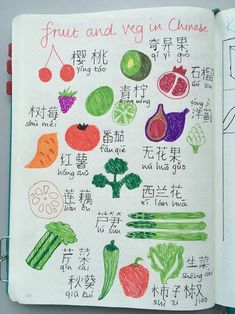 fruit and veg in Chinese
樱桃
yīng táo
奇异果
qí yì guǒ
石榴
shí liu
青柠
qīng níng
树莓
shù méi
番茄
fān qié
洋蓟
yáng jì
红薯
hóng shǔ
无花果
wú huā guǒ
莲藕
lián ǒu
西兰花
xī lán huā
芦笋
lú sǔn
芹菜
qín cài
生菜
shēng cài
秋葵
qiū kuí
柿子椒
shì zi jiāo